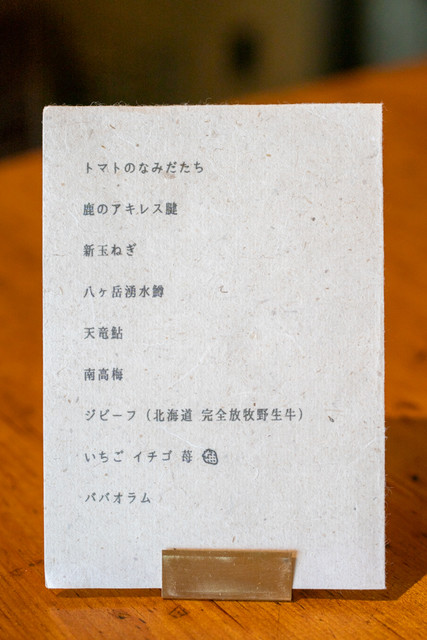 トマトのなみだたち
鹿のアキレス腱
新玉ねぎ
八ヶ岳湧水鱒
天竜鮎
南高梅
ジビーフ（北海道 完全放牧野生牛）
いちご イチゴ 苺
ババオラム